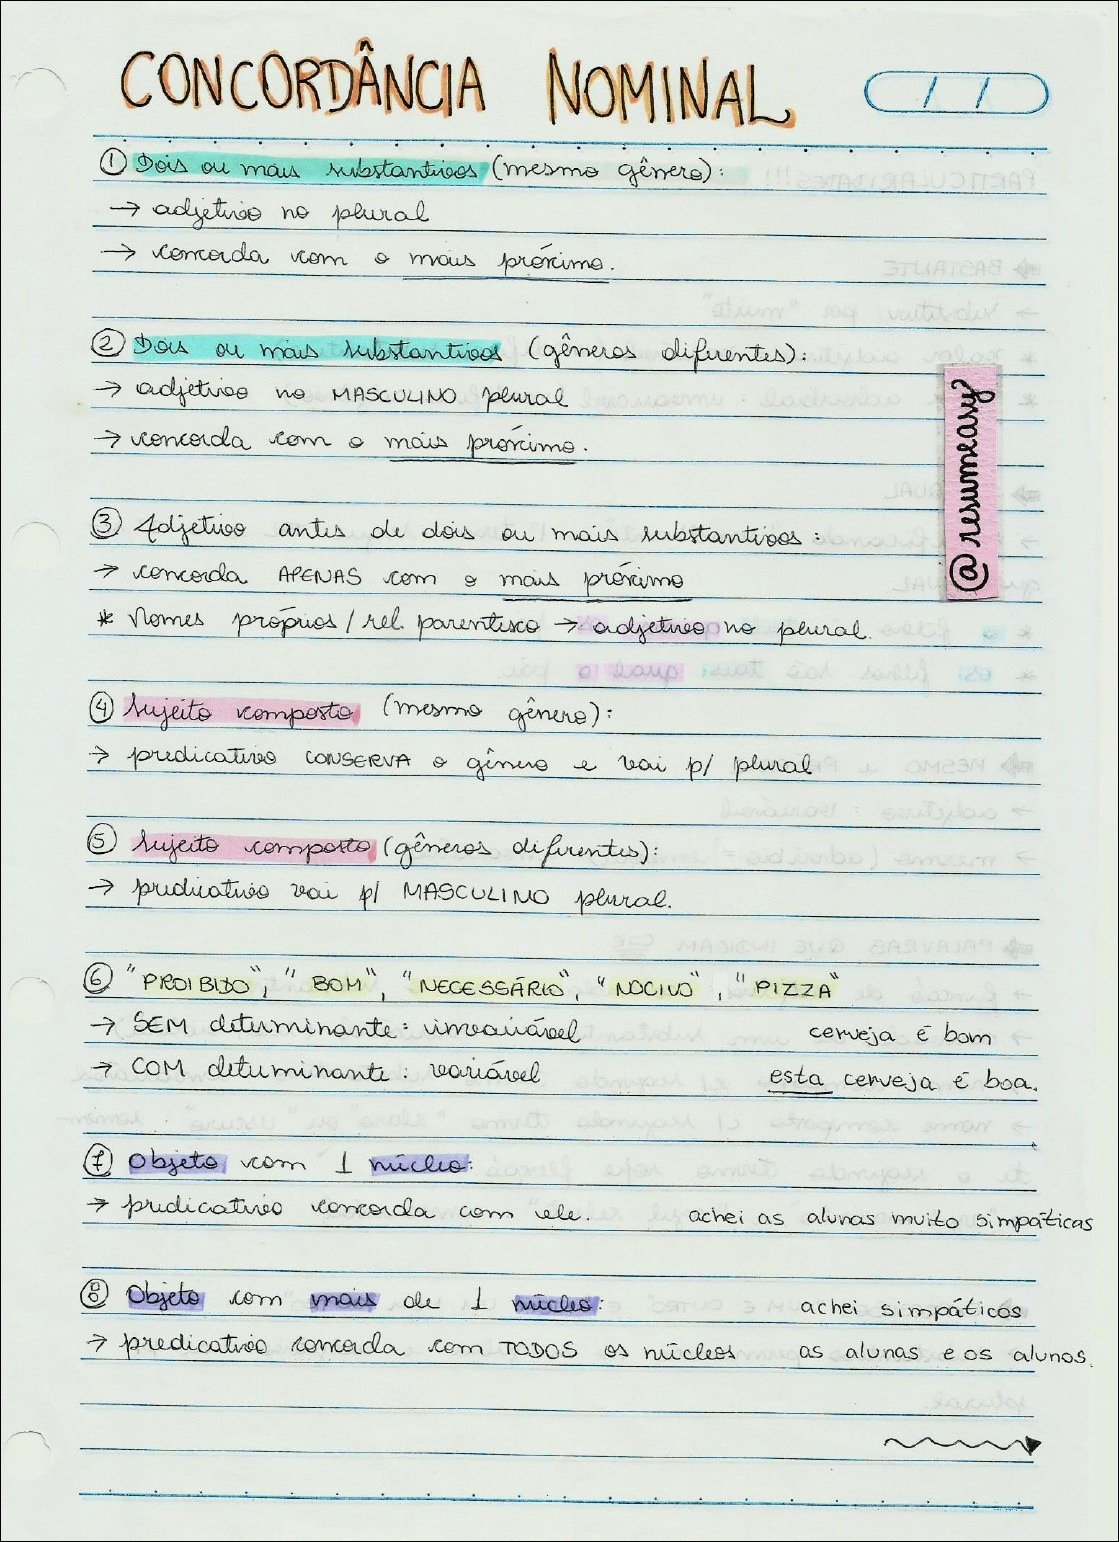 CONCORDÂNCIA NOMINAL / /
① Dois ou mais substantivos (mesmo gênero):
→ adjetivo no plural
→ concorda com o mais próximo.
② Dois ou mais substantivos (gêneros diferentes):
→ adjetivo no MASCULINO plural
→ concorda com o mais próximo.
@resumeasy
③ Adjetivo antes de dois ou mais substantivos:
→ concorda APENAS com o mais próximo
* Nomes próprios / rel. parentesco → adjetivo no plural.
④ Sujeito composto (mesmo gênero):
→ predicativo CONSERVA o gênero e vai p/ plural
⑤ Sujeito composto (gêneros diferentes):
→ predicativo vai p/ MASCULINO plural.
⑥ "PROIBIDO", "BOM", "NECESSÁRIO", "NOCIVO", "PIZZA"
→ SEM determinante: invariável cerveja é bom
→ COM determinante: variável esta cerveja é boa.
⑦ Objeto com 1 núcleo:
→ predicativo concorda com ele. achei as alunas muito simpáticas
⑧ Objeto com mais de 1 núcleo: achei simpáticos
→ predicativo concorda com TODOS os núcleos as alunas e os alunos.